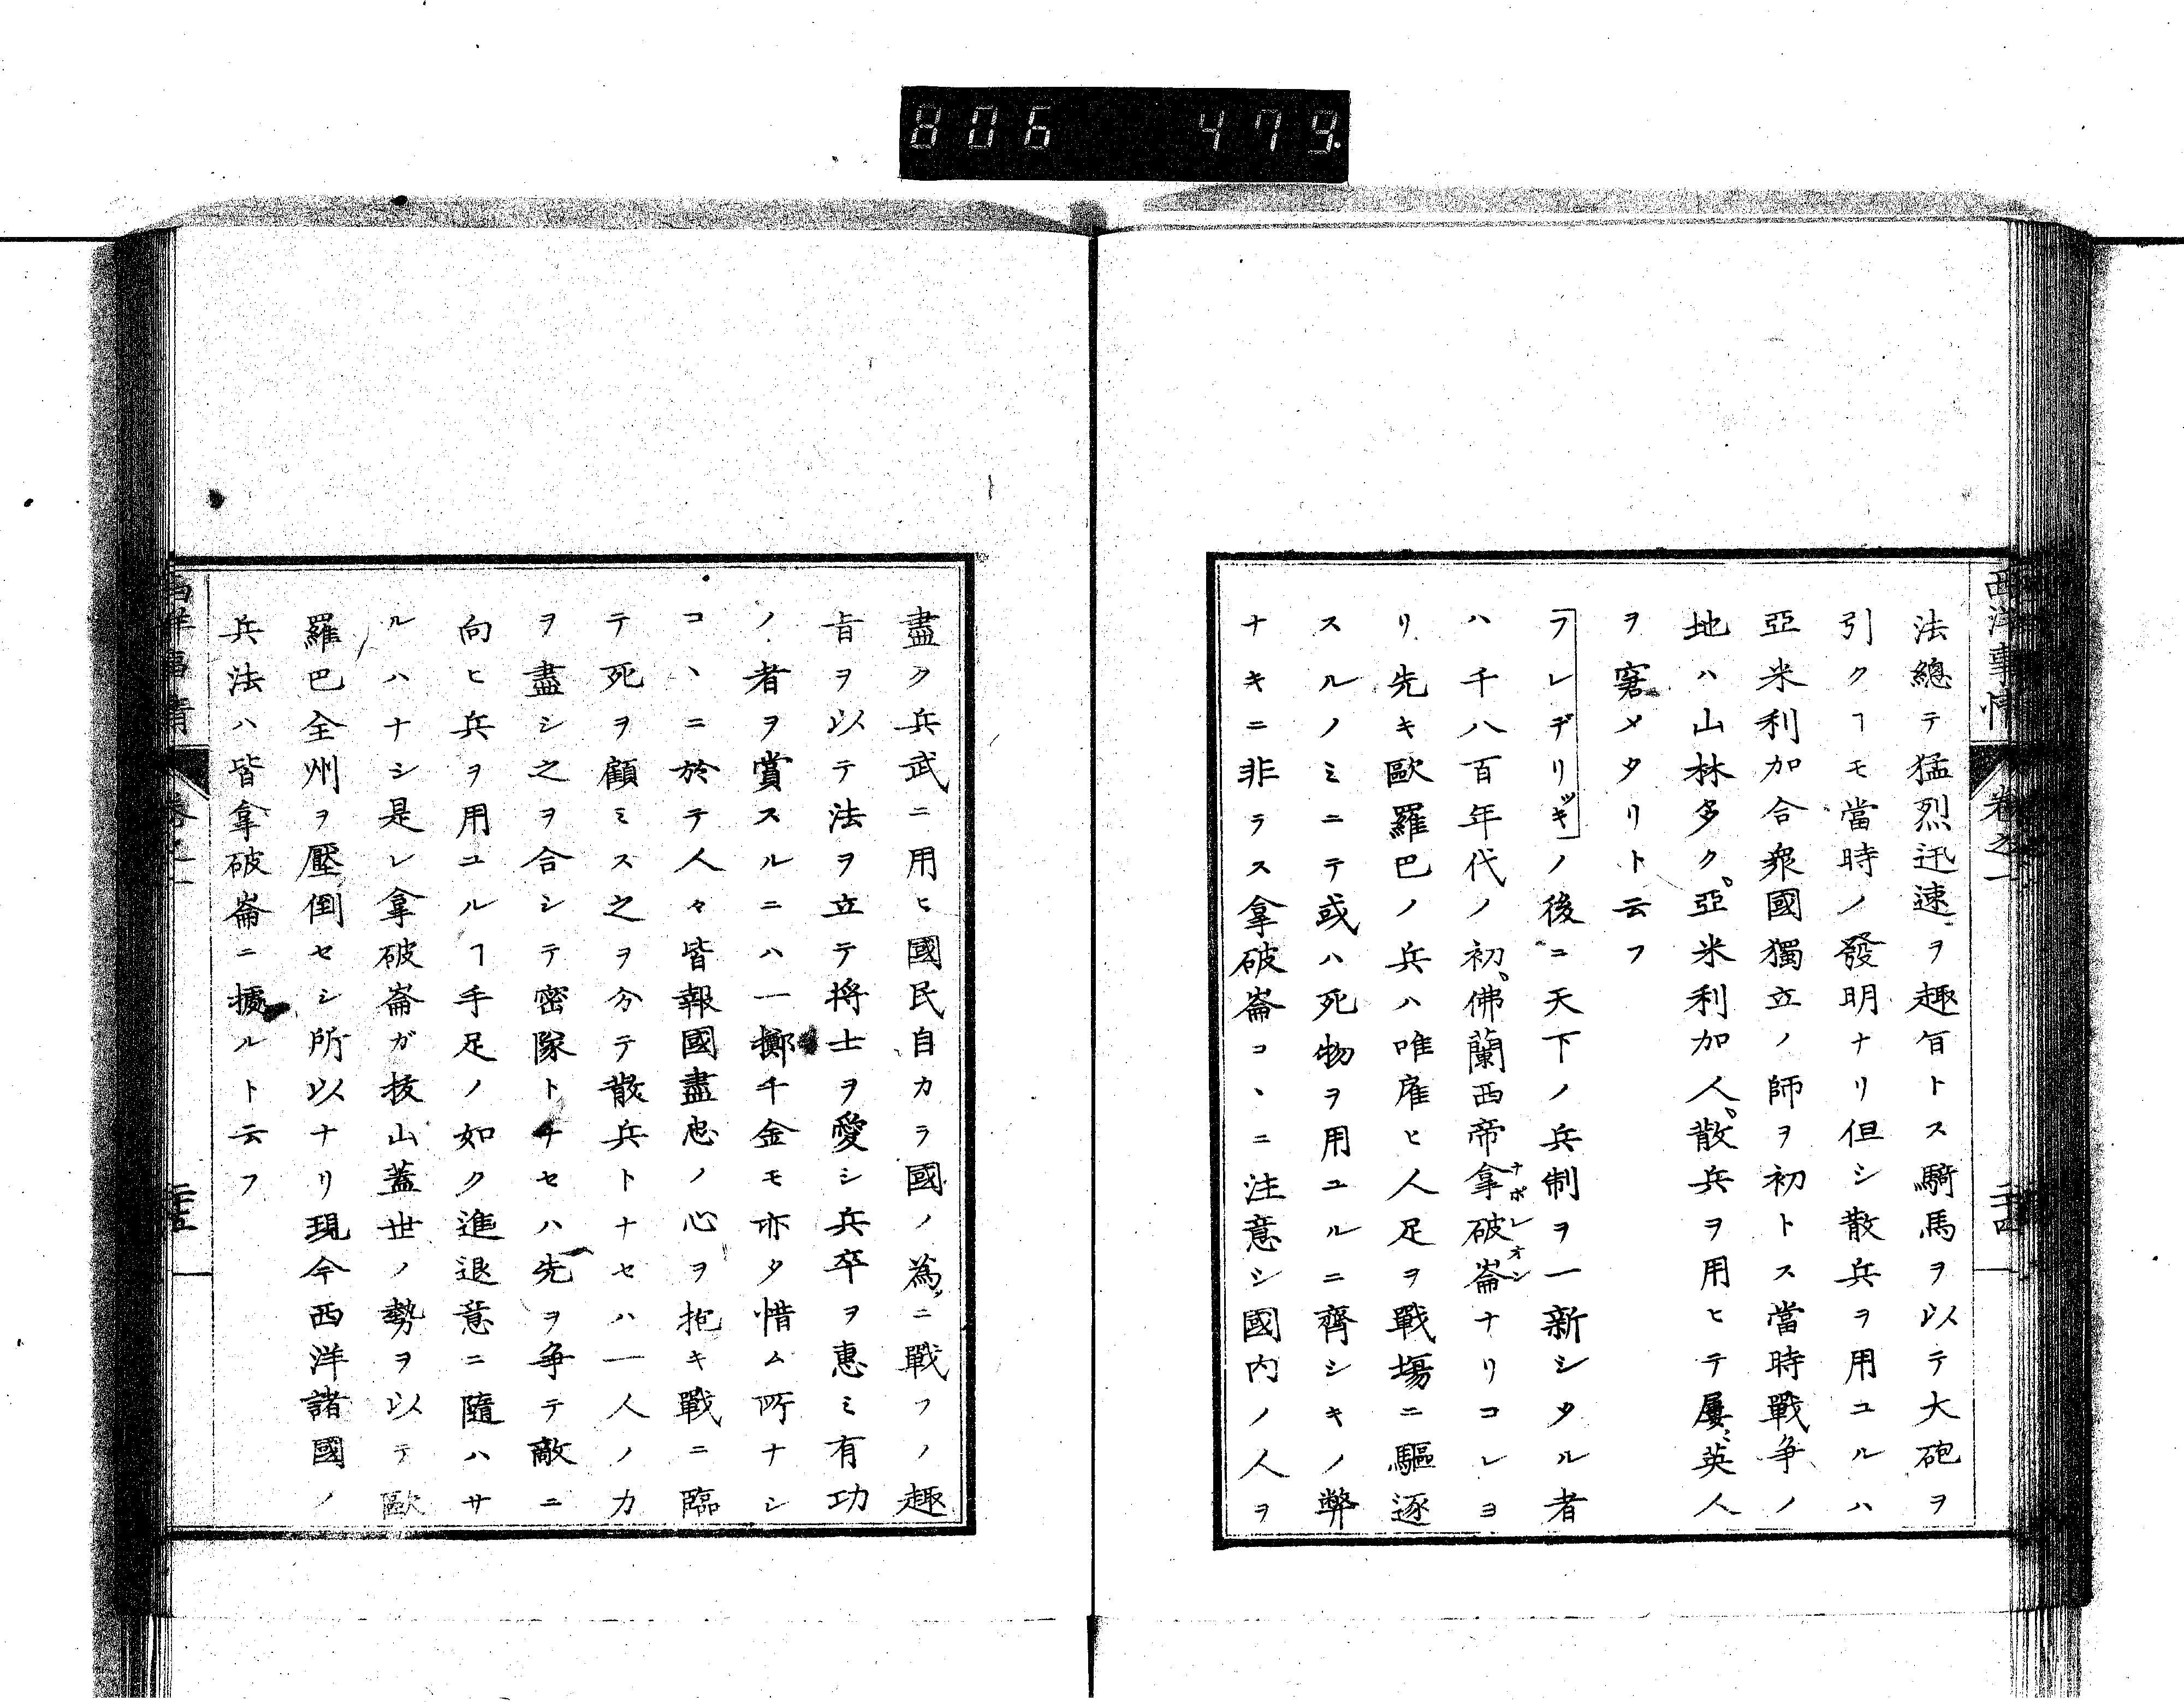 806 479.
西洋事情 卷之一
二十四
法總テ猛烈迅速ヲ趣旨トス騎馬ヲ以テ大砲ヲ
引クヿモ當時ノ發明ナリ但シ散兵ヲ用ユルハ
亞米利加合衆國獨立ノ師ヲ初トス當時戰争ノ
地ハ山林多ク亞米利加人散兵ヲ用ヒテ屢〻英人
ヲ窘メタリト云フ
フレデリッキノ後ニ天下ノ兵制ヲ一新シタル者
ハ千八百年代ノ初佛蘭西帝拿破崙ナリコレヨ
ナポレオン
リ先キ歐羅巴ノ兵ハ唯雇ヒ人足ヲ戰塲ニ驅逐
スルノミニテ或ハ死物ヲ用ユルニ齊シキノ弊
ナキニ非ラス拿破崙コヽニ注意シ國内ノ人ヲ
盡ク兵武ニ用ヒ國民自カラ國ノ為ニ戰フノ趣
旨ヲ以テ法ヲ立テ将士ヲ愛シ兵卒ヲ惠ミ有功
ノ者ヲ賞スルニハ一擲千金モ亦タ惜ム所ナシ
コヽニ於テ人々皆報國盡忠ノ心ヲ抱キ戰ニ臨
テ死ヲ顧ミス之ヲ分テ散兵トナセハ一人ノ力
ヲ盡シ之ヲ合シテ密隊トナセハ先ヲ争テ敵ニ
向ヒ兵ヲ用ユルヿ手足ノ如ク進退意ニ隨ハサ
ルハナシ是レ拿破崙ガ拔山蓋世ノ勢ヲ以テ歐
羅巴全州ヲ壓倒セシ所以ナリ現今西洋諸國ノ
兵法ハ皆拿破崙ニ據ルト云フ
西洋事情 卷之一
二十五